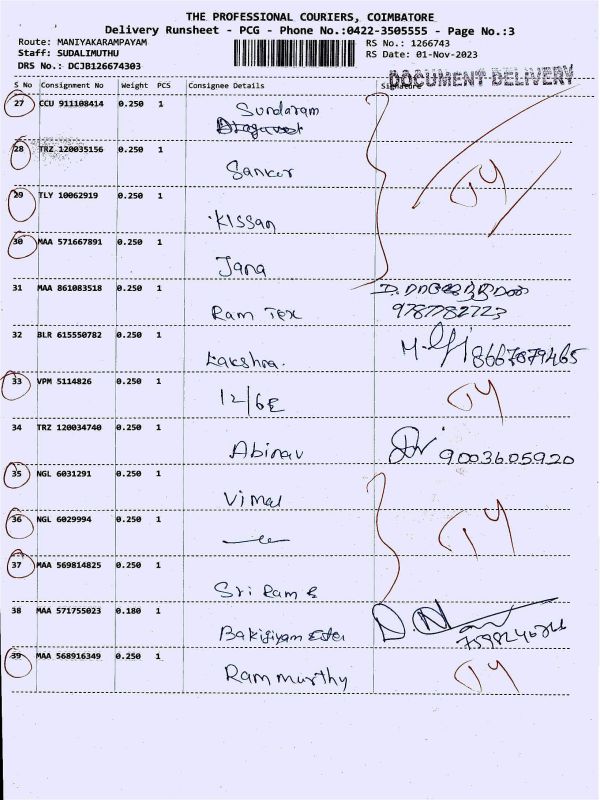 THE PROFESSIONAL COURIERS, COIMBATORE
Delivery Runsheet - PCG - Phone No.:0422-3505555 - Page No.:3
Route: MANIYAKARAMPAYAM
RS No.: 1266743
Staff: SUDALIMUTHU
RS Date: 01-Nov-2023
DRS No.: DCJB126674303
DOCUMENT DELIVERY
S No Consignment No Weight PCS Consignee Details Signature
27 CCU 911108414 0.250 1 Sundaram
28 TRZ 120035156 0.250 1
Sankar
29 TLY 10062919 0.250 1
Kissan
30 MAA 571667891 0.250 1
Jana
31 MAA 861083518 0.250 1
Ram Tex 9787782723
32 BLR 615550782 0.250 1
Lakshra. 8667879465
33 VPM 5114826 0.250 1
12/6E
34 TRZ 120034740 0.250 1
Abinav 9003605920
35 NGL 6031291 0.250 1
Vimal
36 NGL 6029994 0.250 1
37 MAA 569814825 0.250 1
Sri Ram E
38 MAA 571755023 0.180 1
Bakiyiyam Ester
39 MAA 568916349 0.250 1
Ram murthy